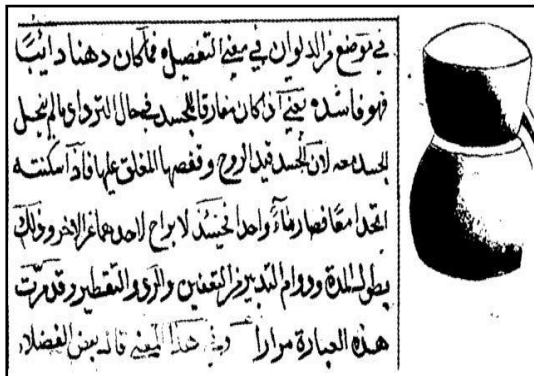 في موضع من الديوان في معنى التفصيل فما كان دهنا دائبا
فهو فاشده يعني اذا كان مفارقا للجسد في حال التردا ي ما لم ينحل
الجسد معه لان الجسد قيد الروح وقفصها المغلق عليها فاذا سكنته
اتحدا معا فصار ماء واحدا لا براح لاحدهما عن الاخر وذلك
بطول المدة ودوام التدبير من التعفين والتقطير وقد مرت
هذه العبارة مرارا وفي هذا المعنى قال بعض الفضلاء